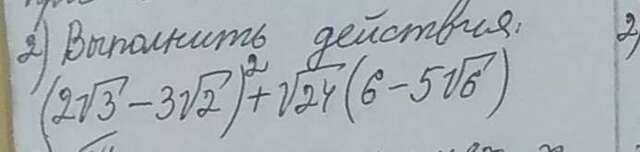 2) Выполнить действия. 2)
(2√3 − 3√2)² + √24 (6 − 5√6)